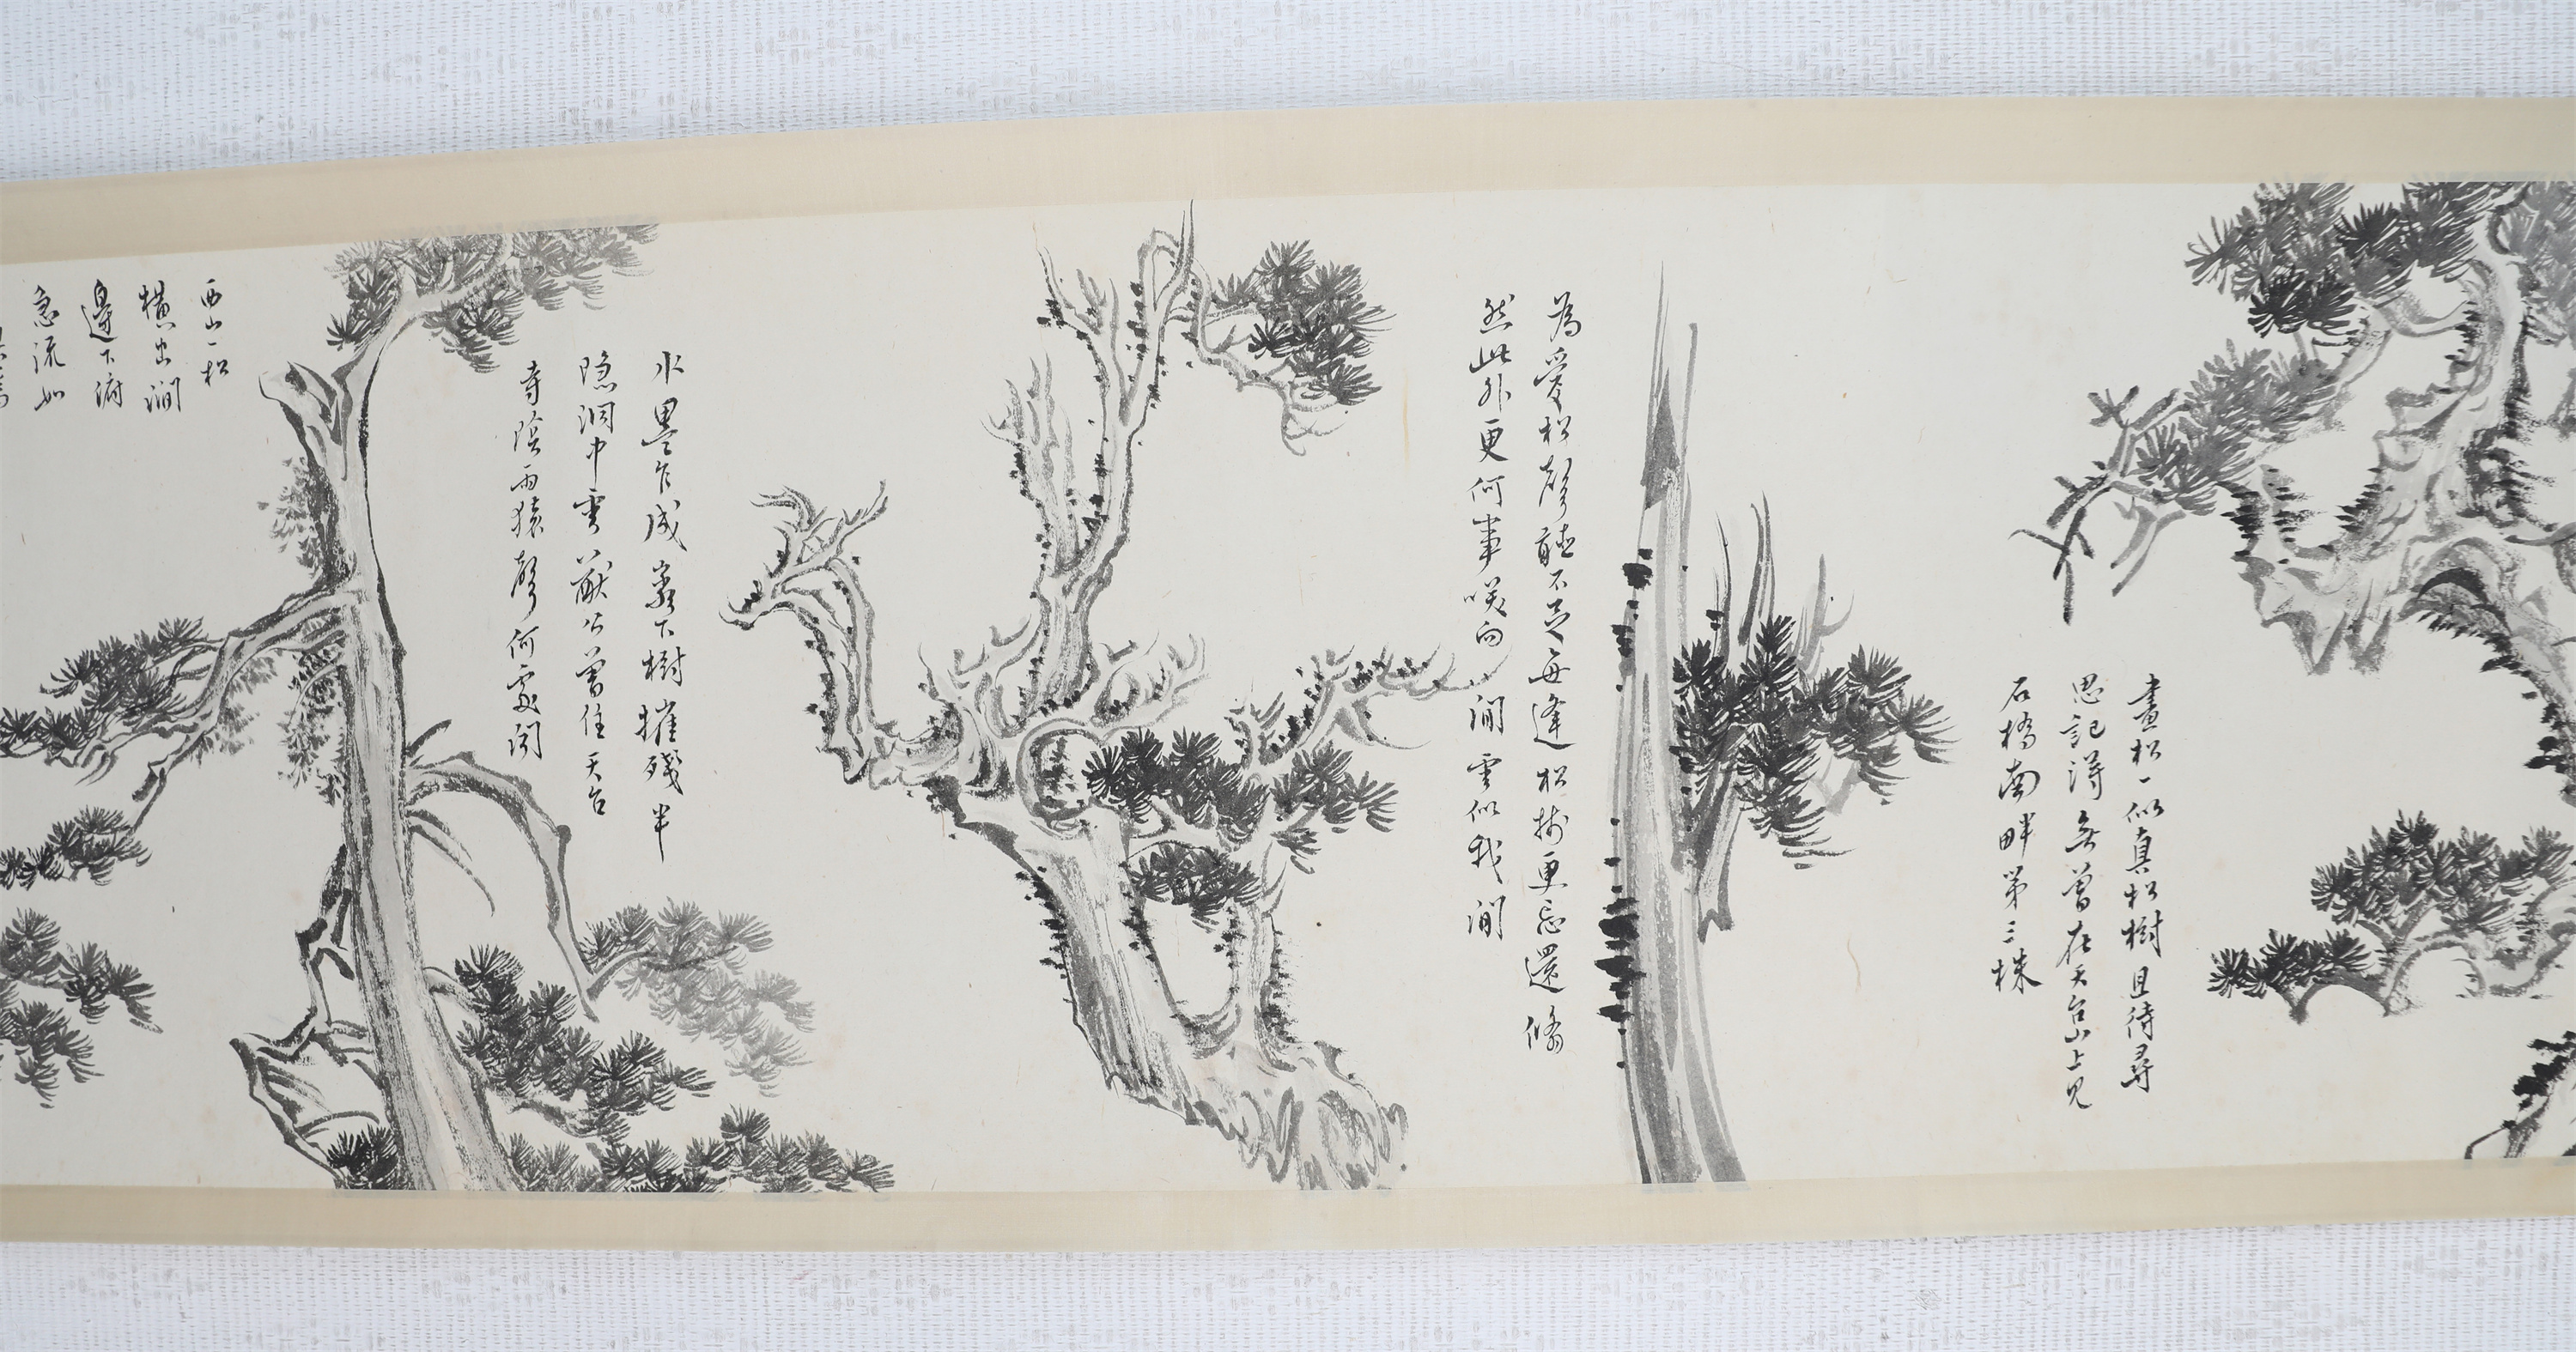 畫松一似真松樹且待尋
思記得無曾在天台山上見
石橋南畔第三株
為愛松聲聽不足每逢松樹更忘還翛
然此外更何事咲向閒雲似我閒
水墨乍成巖下樹摧殘半
隐洞中雲猷公曽住天台
寺陰雨猿聲何處聞
西山一松
橫出澗
邊下俯
急流如